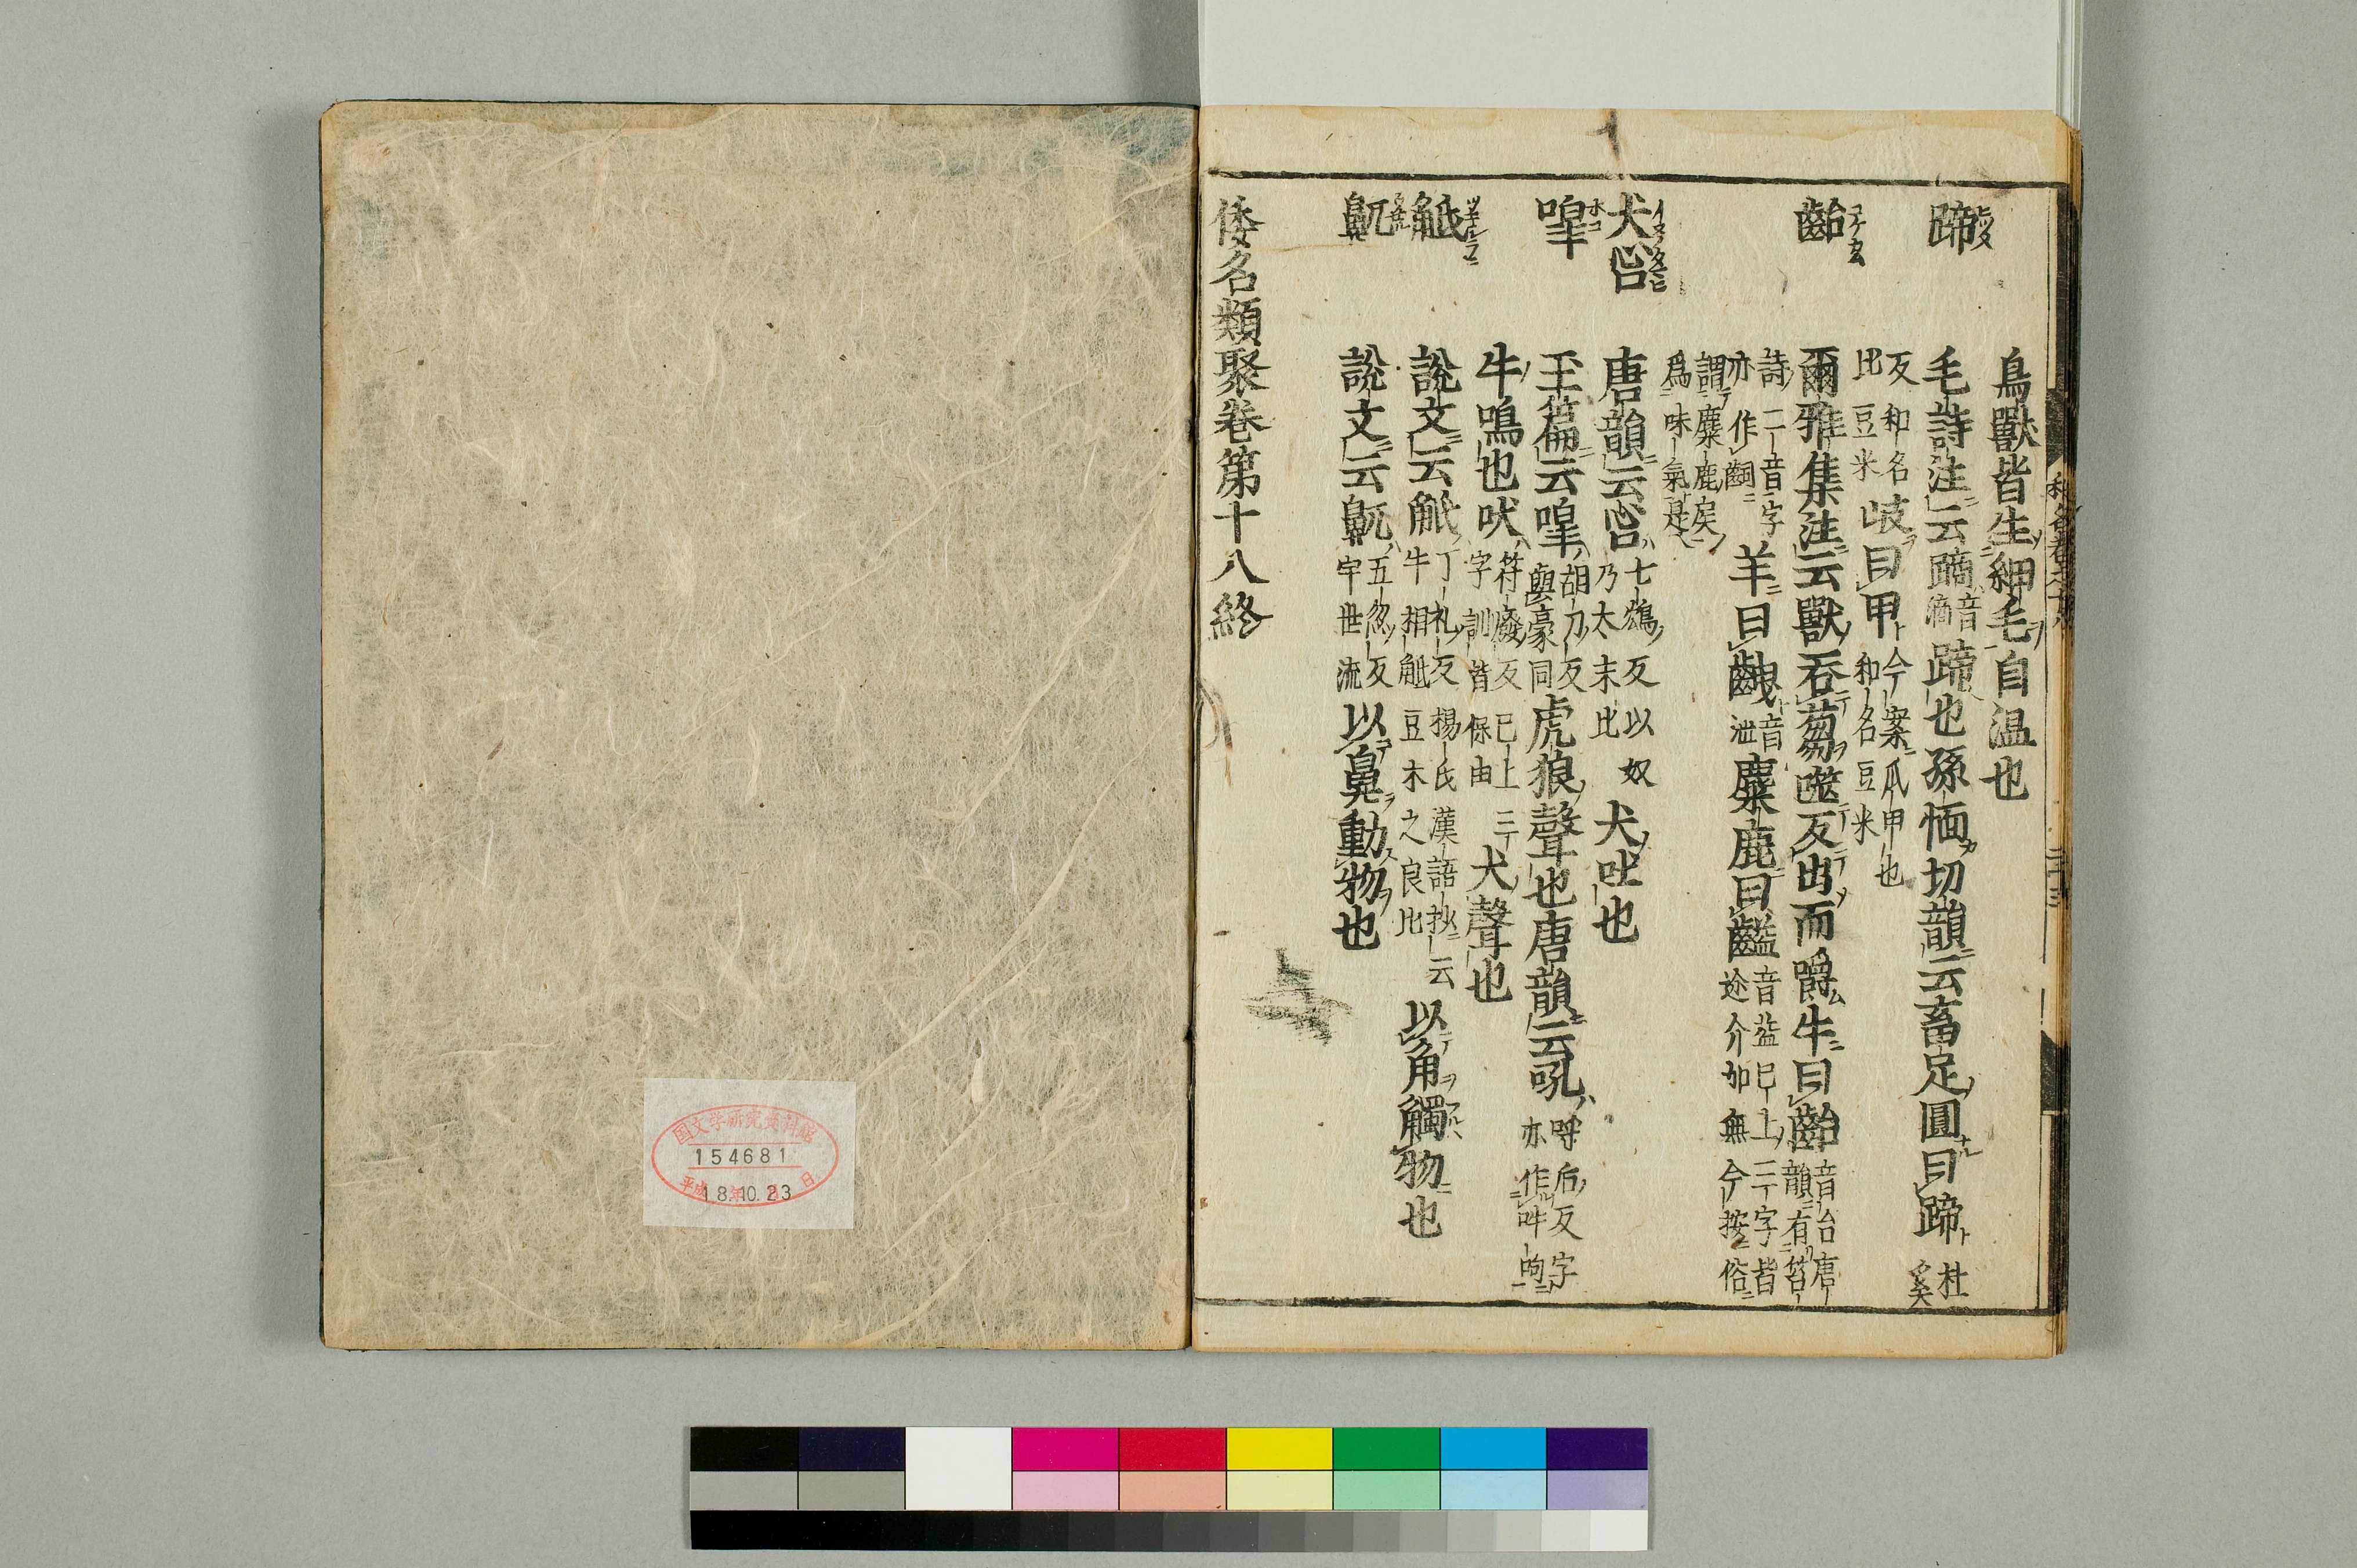 鳥獸皆生細毛自温也
蹄 毛詩注云蹢音滴蹄也孫愐切韻云畜足圓曰蹄杜奚
反和名比豆米岐曰甲今案爪甲也和名豆米
齝 爾雅集注云獸呑芻噬反出而嚼牛曰齝音台唐韻有笞
詩二音字亦作齣羊曰齥音泄麋鹿曰齸音益已上三字皆途介加無今按俗
謂麋鹿戻爲味氣是
犬吣 唐韻云吣七鴆反以奴乃太末比犬吐也
嘷 玉篇云嘷胡刀反與豪同虎狼聲也唐韻云吼呼后反字亦作吽呴
牛鳴也吠符廢反已上三字訓皆保由犬聲也
觝 說文云觝丁礼反楊氏漢語抄云牛相觝豆木之良比以角觸物也
鼿 說文云鼿五忽反宇世流以鼻動物也
倭名類聚卷第十八終
国文学研究資料館
154681
平成18年10月23日